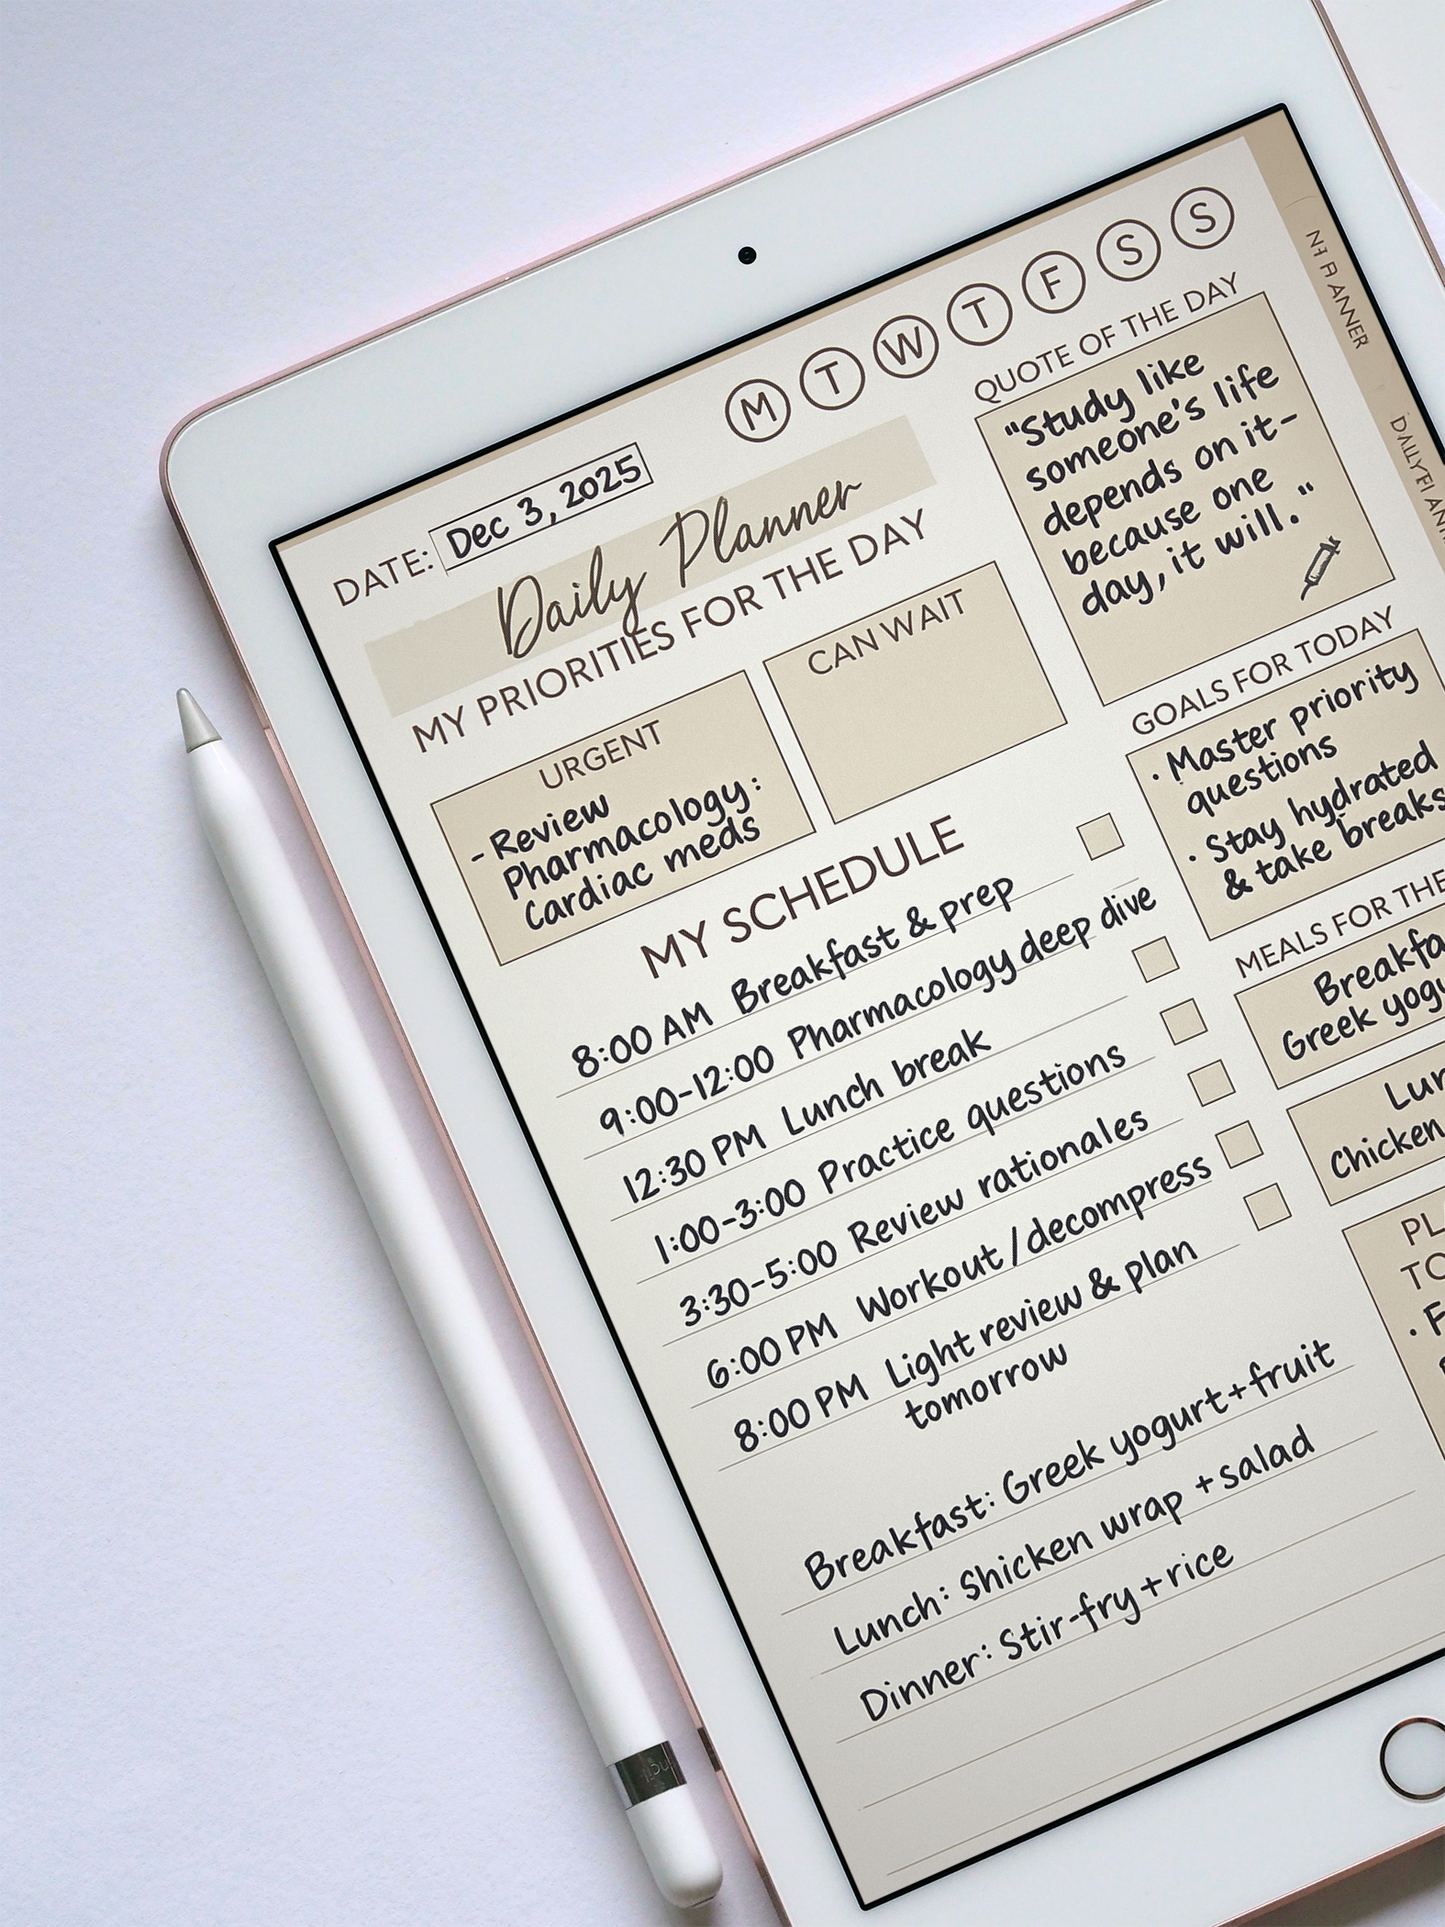 M T W T F S S
DATE: Dec 3, 2025
Daily Planner
MY PRIORITIES FOR THE DAY
URGENT
- Review
Pharmacology:
Cardiac meds
CAN WAIT
MY SCHEDULE
8:00 AM Breakfast & prep
9:00-12:00 Pharmacology deep dive
12:30 PM Lunch break
1:00-3:00 Practice questions
3:30-5:00 Review rationales
6:00 PM Workout/decompress
8:00 PM Light review & plan
tomorrow
Breakfast: Greek yogurt+fruit
Lunch: Shicken wrap + salad
Dinner: Stir-fry+rice
QUOTE OF THE DAY
"Study like
someone's life
depends on it-
because one
day, it will."
GOALS FOR TODAY
· Master priority
questions
· Stay hydrated
& take breaks
MEALS FOR THE
Breakfa
Greek yogu
Lun
Chicken
PL
TO
· F
ANNER
DAILY